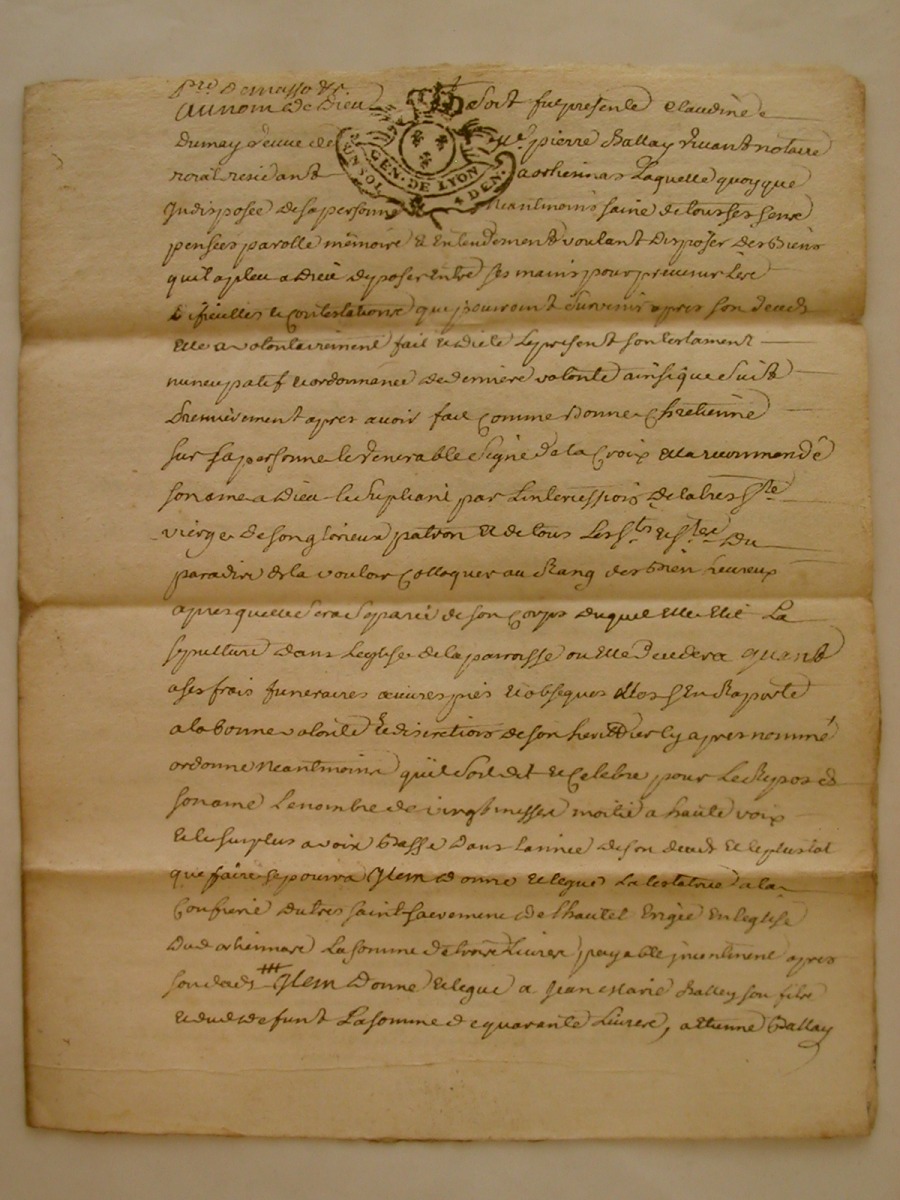 au nom de Dieu Soit fut presente Claudine
Dumay veufve de Me pierre Ballay vivant notaire
GEN. DE LYON
UN SOL
DEN.
roial residant a laquelle quoyque
Indisposée de sa personne neantmoins saine de tous ses sens
pensées parolle mémoire et Entendement voulant disposer des Biens
quil a pleu a Dieu deposer Entre ses mains pour prevenir les
dificulles et Contestations qui pouront Survenir apres son deceds
Elle a volontairement fait et dicté le present son testament
nuncupatif et ordonnance de derniere volonté ainsi que Suit
premierement apres avoir fait Comme Bonne Chretienne
sur sa personne le venerable Signe de la Croix Elle a recommandé
son ame a Dieu le Supliant par Lintercession de la tres Ste
vierge de son glorieux patron et de tous Les Sts et Stes du
paradis de la vouloir Colloquer au Rang des Bien heureux
apres quelle sera Separée de son Corps duquel Elle Elit La
sepulture dans Leglise de la parroisse ou Elle decedera quant
a ses frais funeraires œuvres pies et obseques Elle sEn Raporte
a la bonne volonté et discretions de son heritier Cy apres nommé
ordonne neantmoins quil soit dit et Celebre pour Le Repos de
son ame Le nombre de vingt messes moitié a haute voix
et le surplus a voix Basse dans Lannée de son deceds et le plustot
que faire se pourra Item donne et legue La testatrice a la
Confrerie du tres saint Sacrement de lhautel Erigée En leglise
dud La somme de trois Livres payable incontinent apres
son deceds Item Donne et legue a Jean Marie Ballay son fils
et dud defunt La somme de quarante Livres, a Etienne Ballay